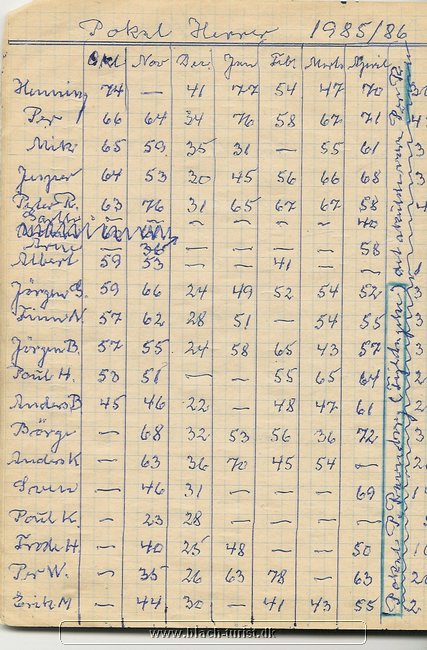 Pokal Herrer 1985/86
Okt Nov Dec Jan Feb Marts April
Henning 74 — 41 77 54 47 70
Per 66 64 34 76 58 67 71
Mik 65 59 35 31 — 55 61
Jesper 64 53 30 45 56 66 68
Peter R. 63 76 31 65 67 67 58
— — — — — — 40
Arne — 36 58
Albert 59 53 — — 41 — —
Jörgen S. 59 66 24 49 52 54 52
Finn N. 57 62 28 51 — 54 55
Jörgen B. 57 55 24 58 65 43 57
Poul H. 53 51 — — 55 65 64
Anders B 45 46 22 — 48 47 61
Börge — 68 32 53 56 36 72
Anders K — 63 36 70 45 54 —
Sven — 46 31 — — — 69
Poul K. — 23 28 — — — —
Frode H — 40 25 48 — — 50
Per W. — 35 26 63 78 — 63
Erik M — 44 30 — 41 43 55
Pokal P.
Per R.
www.blach-turist.dk